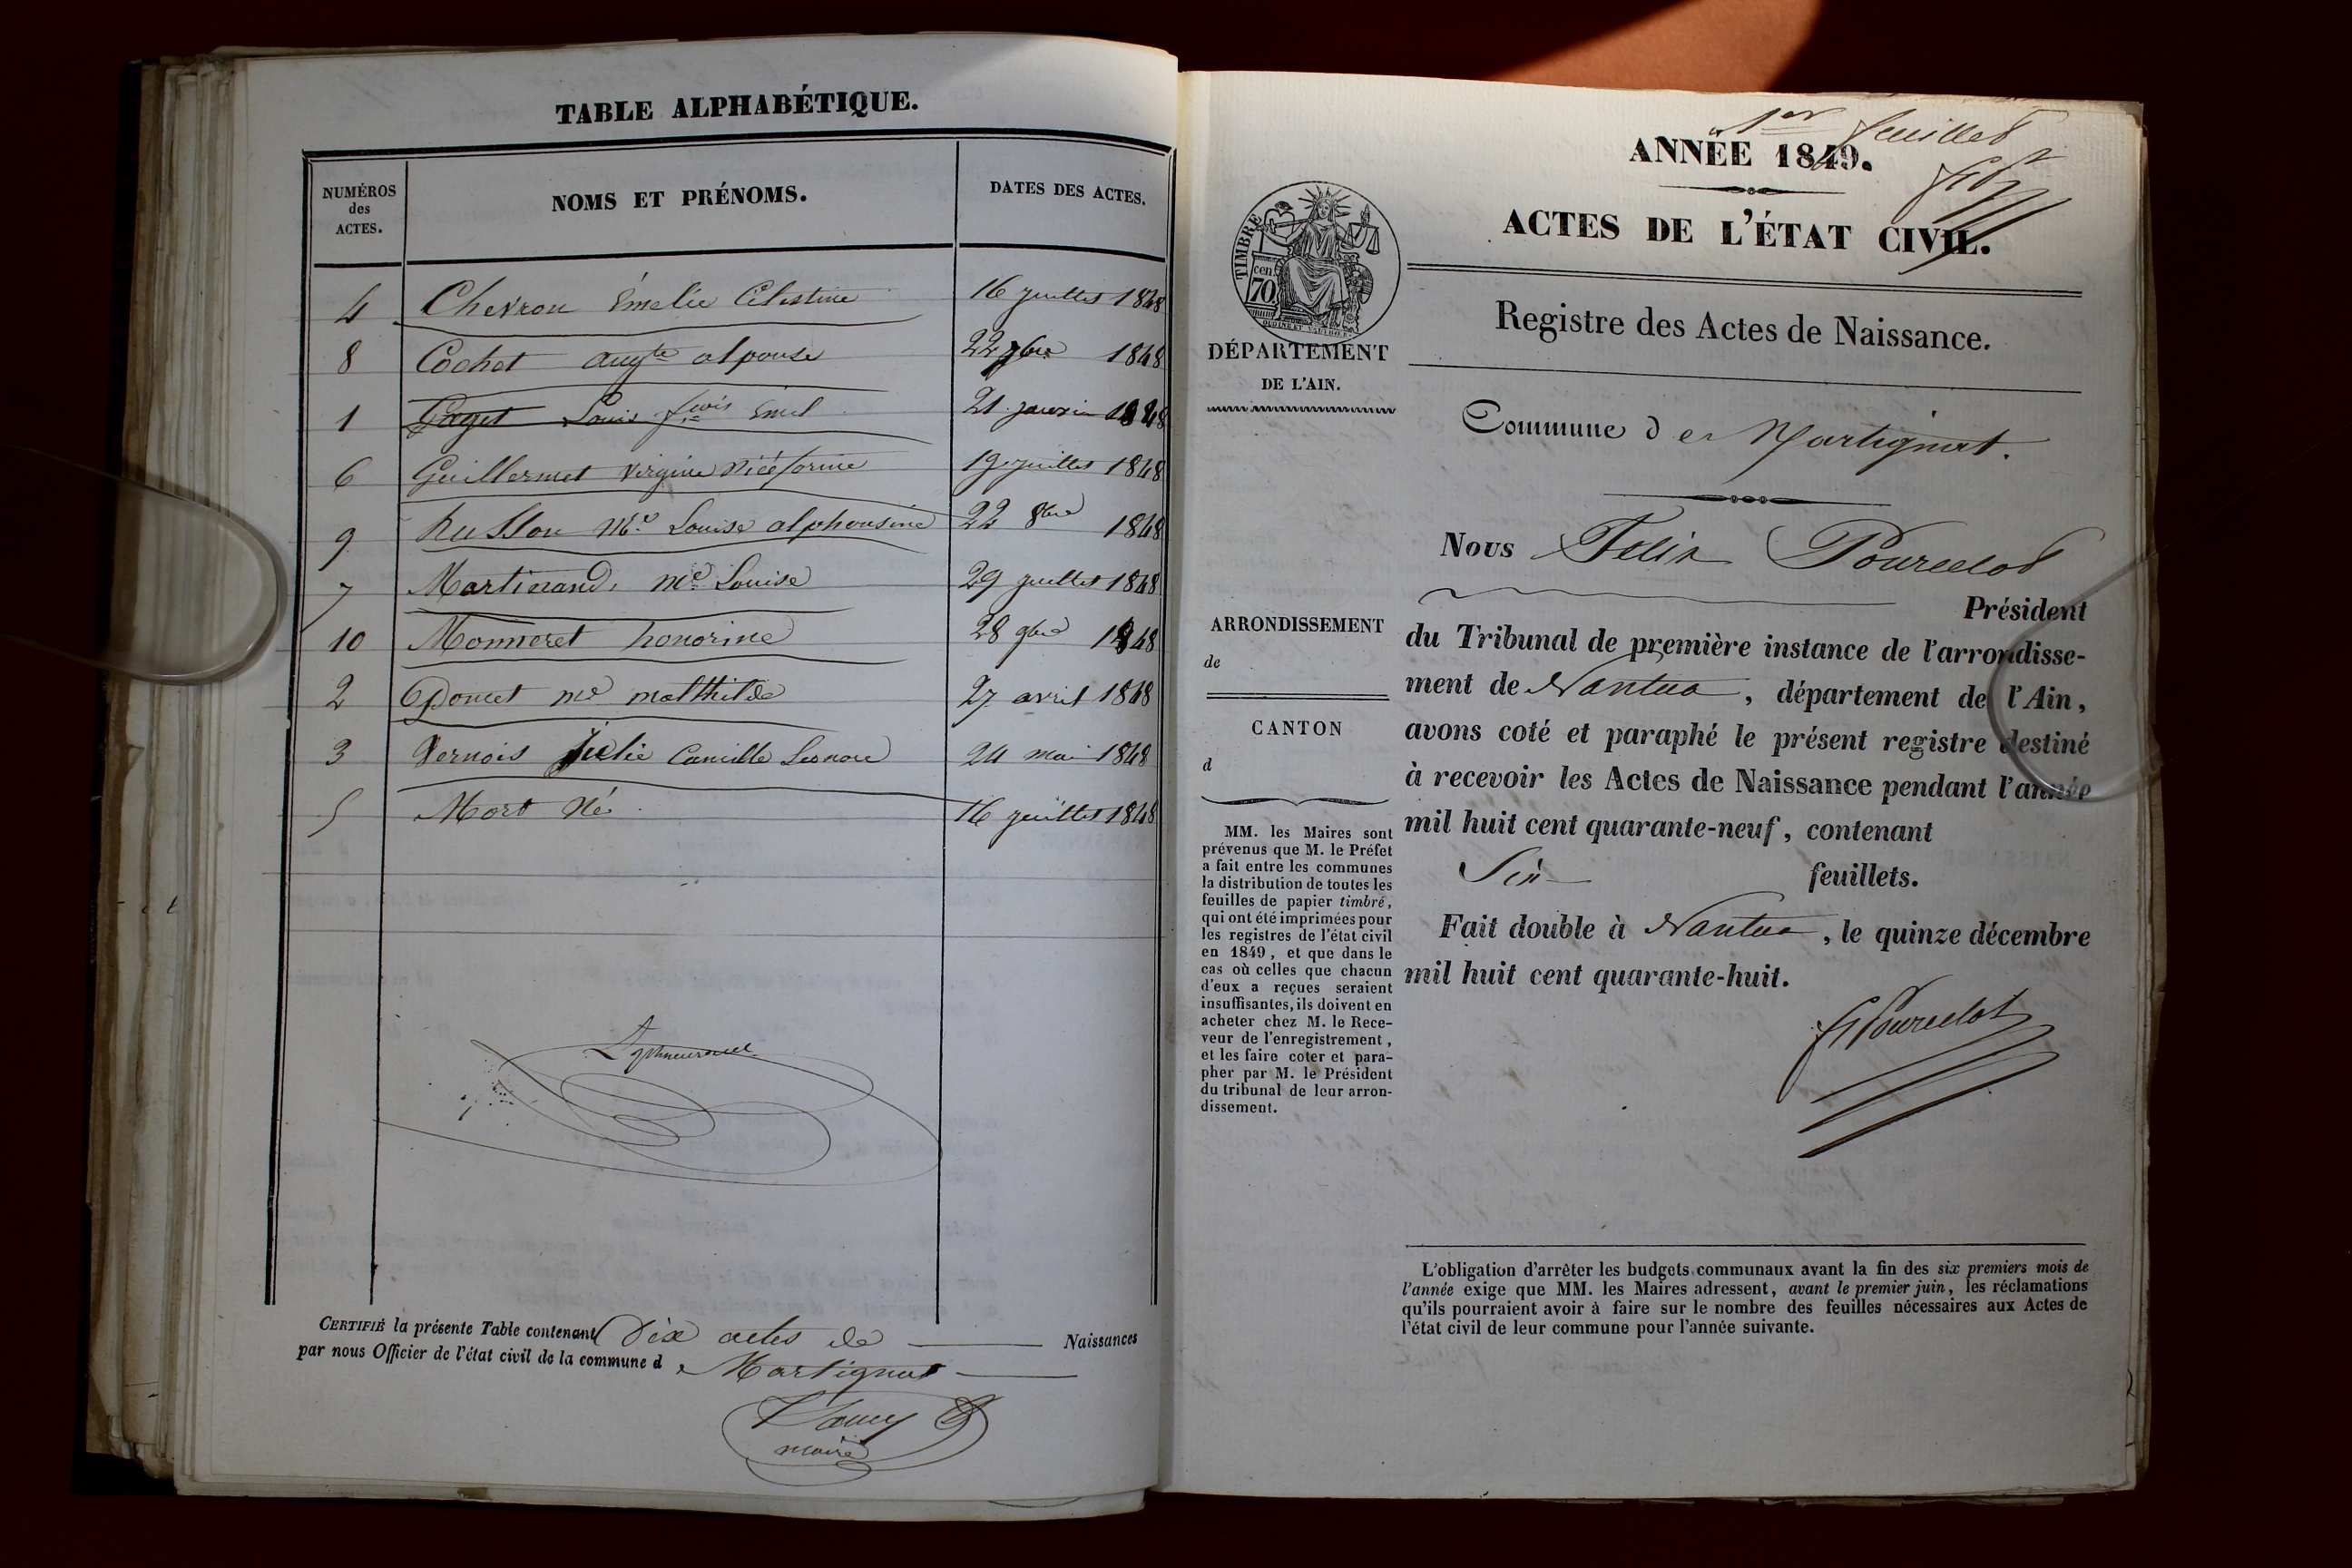 TABLE ALPHABÉTIQUE.
NUMÉROS
des
ACTES.
NOMS ET PRÉNOMS.
DATES DES ACTES.
4 Chevron Émelie Célestine 16 juillet 1848
8 Cochet augte alponse 22 7bre 1848
1 Gaget Louis fcois Emil 21 janvier 1848
6 Guillermet Virginie Nicéforine 19 juillet 1848
9 Husson Me Louise alphonsine 22 8bre 1848
7 Martinand, me Louise 29 juillet 1848
10 Monneret honorine 28 9bre 1848
2 Poncet me matthilde 27 avril 1848
3 Vernois Julie Camille Leonore 24 mai 1848
5 Mort Né 16 juillet 1848
CERTIFIÉ la présente Table contenant Dix actes de Naissances
par nous Officier de l'état civil de la commune de Martignat
maire
1er feuillet
ANNÉE 1849.
ACTES DE L'ÉTAT CIVIL.
TIMBRE
cen
70
Registre des Actes de Naissance.
DÉPARTEMENT
DE L'AIN.
Commune de Martignat.
Nous Felix Pourcelot
Président
ARRONDISSEMENT
de
CANTON
d
du Tribunal de première instance de l'arrondisse-
ment de Nantua, département de l'Ain,
avons coté et paraphé le présent registre destiné
à recevoir les Actes de Naissance pendant l'année
mil huit cent quarante-neuf, contenant
Six feuillets.
Fait double à Nantua, le quinze décembre
mil huit cent quarante-huit.
FPourcelot
MM. les Maires sont
prévenus que M. le Préfet
a fait entre les communes
la distribution de toutes les
feuilles de papier timbré,
qui ont été imprimées pour
les registres de l'état civil
en 1849, et que dans le
cas où celles que chacun
d'eux a reçues seraient
insuffisantes, ils doivent en
acheter chez M. le Rece-
veur de l'enregistrement,
et les faire coter et para-
pher par M. le Président
du tribunal de leur arron-
dissement.
L'obligation d'arrêter les budgets communaux avant la fin des six premiers mois de
l'année exige que MM. les Maires adressent, avant le premier juin, les réclamations
qu'ils pourraient avoir à faire sur le nombre des feuilles nécessaires aux Actes de
l'état civil de leur commune pour l'année suivante.